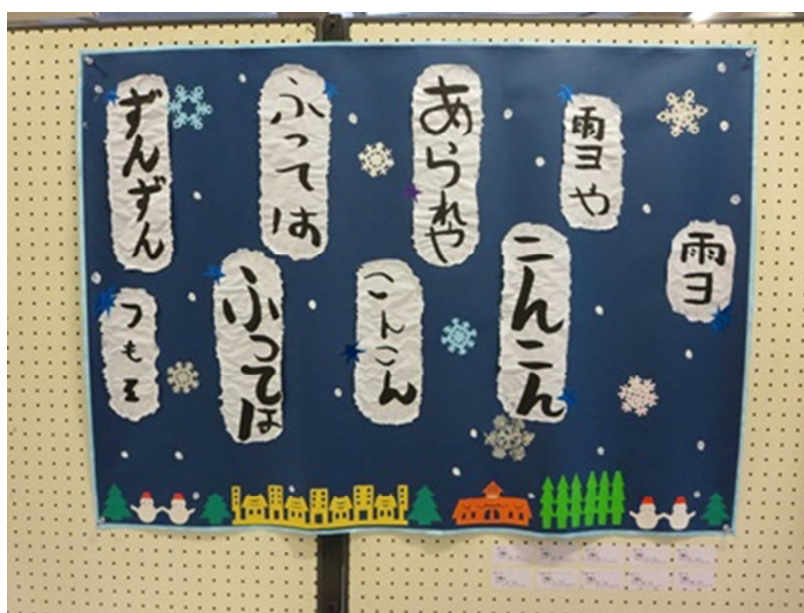 雪
雪や
こんこん
あられや
こんこん
ふっては
ふっては
ずんずん
つもる